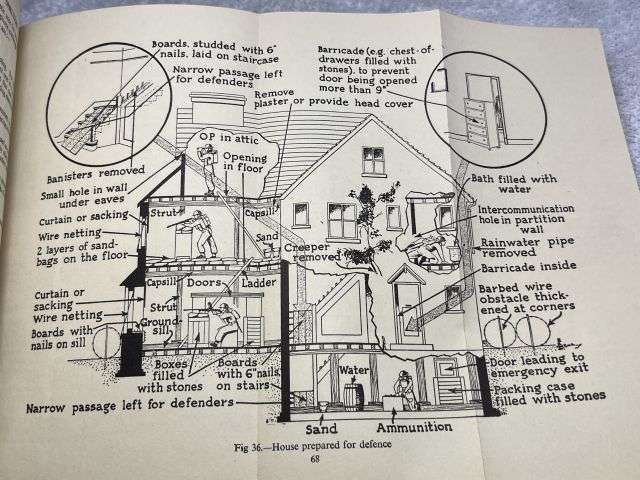 Boards, studded with 6"
nails, laid on staircase
Narrow passage left
for defenders
Barricade (e.g. chest-of-
drawers filled with
stones), to prevent
door being opened
more than 9"
Remove
plaster or provide head cover
OP in attic
Opening
in floor
Banisters removed
Small hole in wall
under eaves
Curtain or sacking
Wire netting
2 layers of sand-
bags on the floor
Strut
Capsill
Sand
Creeper
removed
Bath filled with
water
Intercommunication
hole in partition
wall
Rainwater pipe
removed
Barricade inside
Barbed wire
obstacle thick-
ened at corners
Curtain or
sacking
Wire netting
Boards with
nails on sill
Capsill
Doors
Ladder
Strut
Ground-
sill
Boxes
filled
with stones
Boards
with 6" nails
on stairs
Water
Door leading to
emergency exit
Packing case
filled with stones
Narrow passage left for defenders
Sand
Ammunition
Fig 36.—House prepared for defence
68